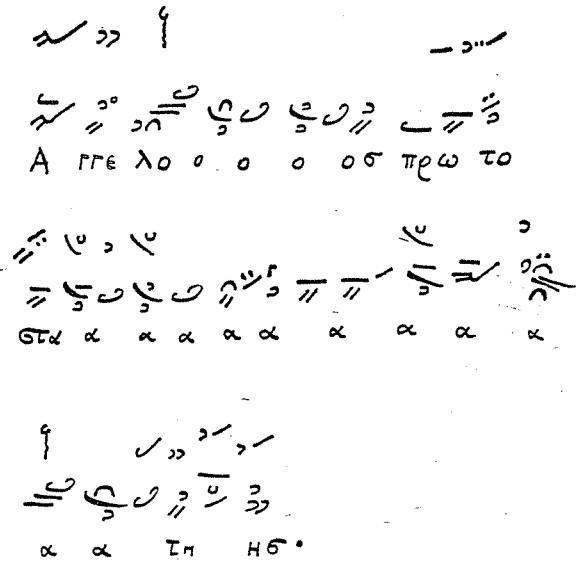 Α γγε λο ο ο ο οσ πρω το
στα α α α α α α α α α
α α τη ησ·